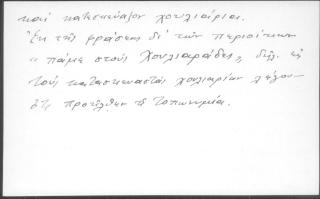 καὶ κατεσκεύαζον χουλιάρια.
Ἐκ τῆς φράσεως δὲ τῶν περιοίκων
« πᾶμε στοὺς Χουλιαράδες», δηλ. εἰς
τοὺς κατασκευαστὰς χουλιαρίων λέγουν
ὅτι προῆλθεν τὸ τοπωνυμία.